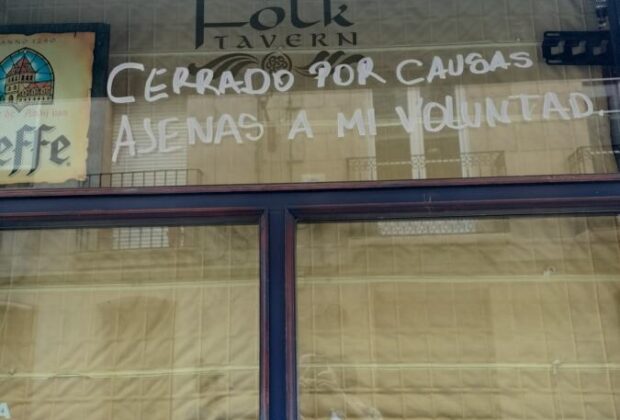 Folk
TAVERN
ANNO 1240
effe
CERRADO POR CAUSAS
AJENAS A MI VOLUNTAD.
A